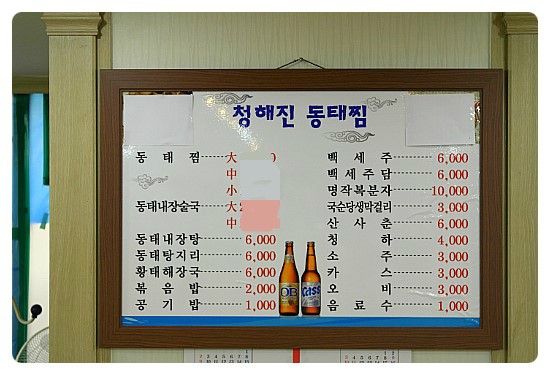 청해진 동태찜
동태찜 大 0
中
小
동태내장술국 大 2
中
동태내장탕 6,000
동태탕지리 6,000
황태해장국 6,000
볶음밥 2,000
공기밥 1,000
백세주 6,000
백세주담 6,000
명작복분자 10,000
국순당생막걸리 3,000
산사춘 6,000
청하 4,000
소주 3,000
카스 3,000
오비 3,000
음료수 1,000
OB
Cass